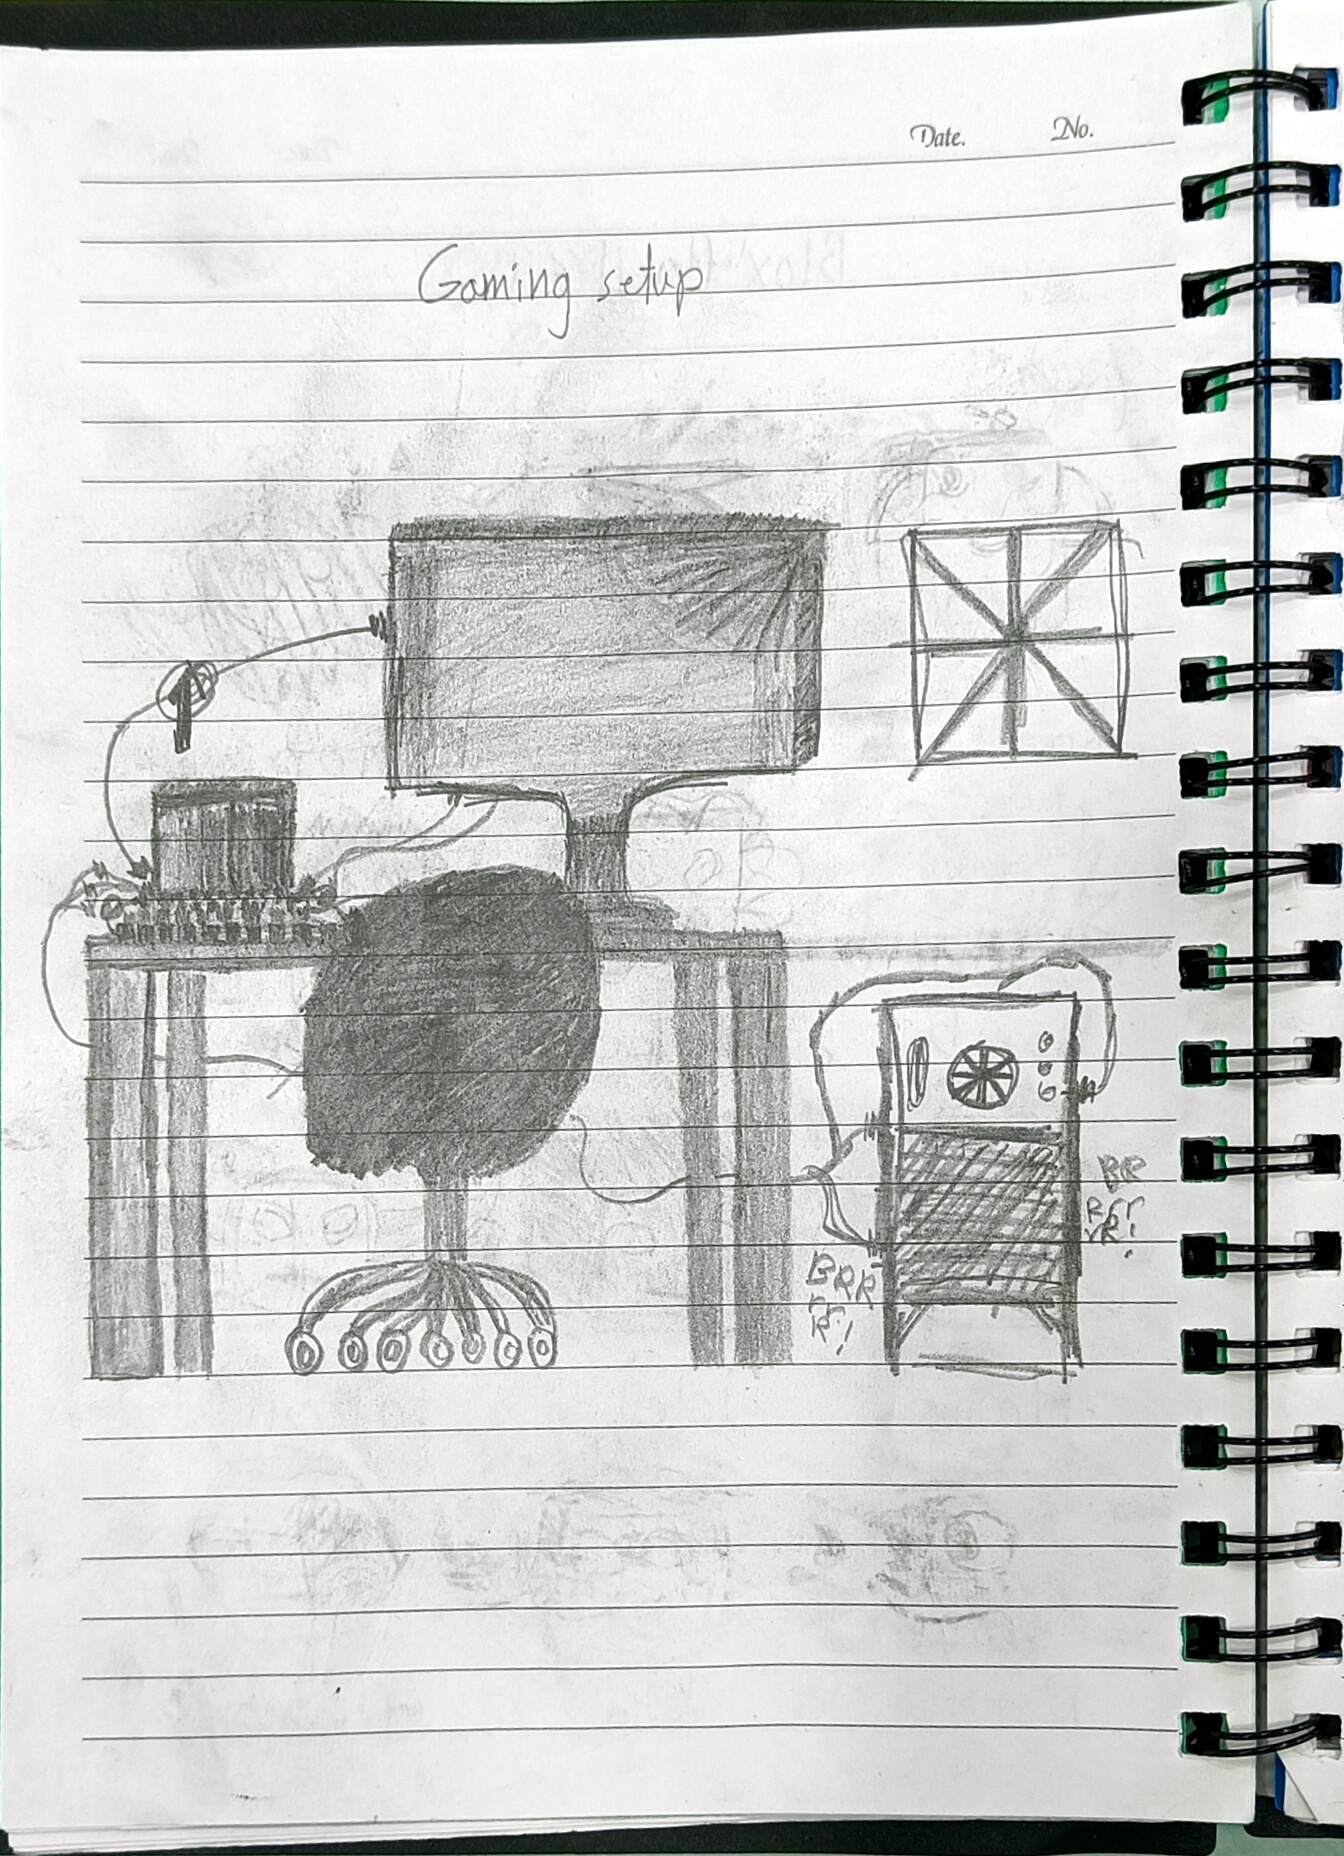 Date. No.
Gaming setup
BR
Rrr
VR!
BRR
rr
R!